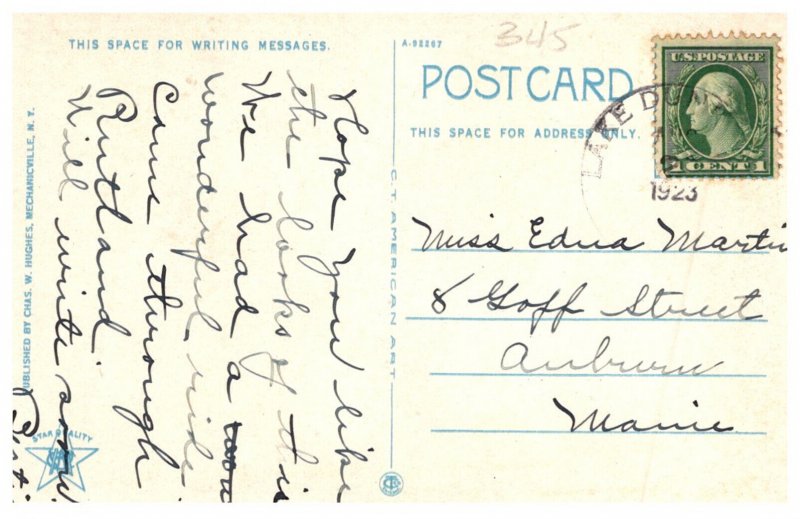 THIS SPACE FOR WRITING MESSAGES.
Hope you like
the looks of this
We had a won
wonderful ride
Came through
Rutland
Will write soon
PUBLISHED BY CHAS. W. HUGHES, MECHANICVILLE, N. Y.
STAR QUALITY
C.T. AMERICAN ART
A-92267
345
POST CARD
THIS SPACE FOR ADDRESS ONLY.
U.S. POSTAGE
1 CENT 1
LAKE DUN
1923
Miss Edna Martin
8 Goff Street
Auburn
Maine